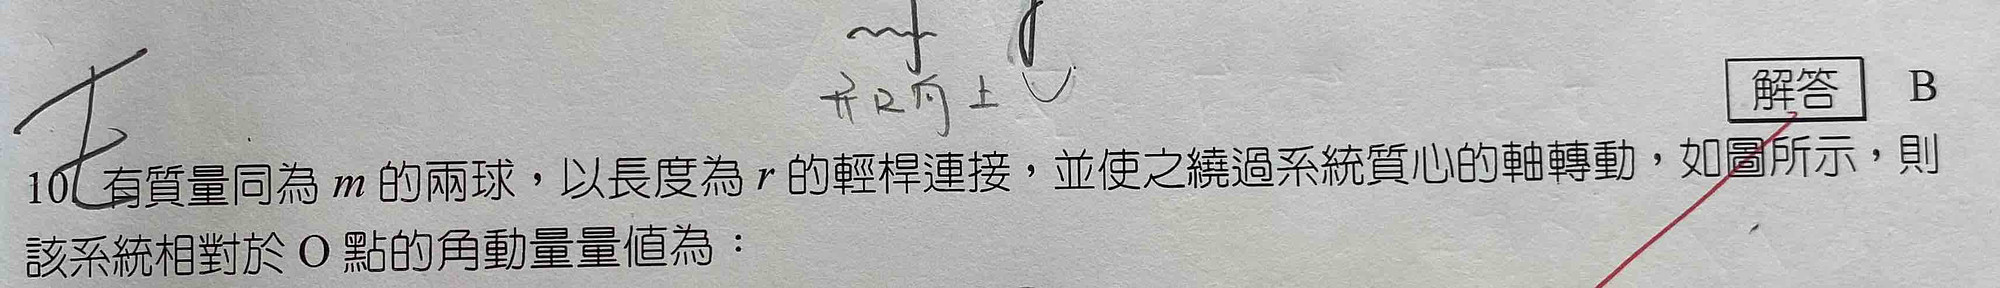 開口向上
解答 B
10. 有質量同為 m 的兩球，以長度為 r 的輕桿連接，並使之繞過系統質心的軸轉動，如圖所示，則
該系統相對於 O 點的角動量量值為：